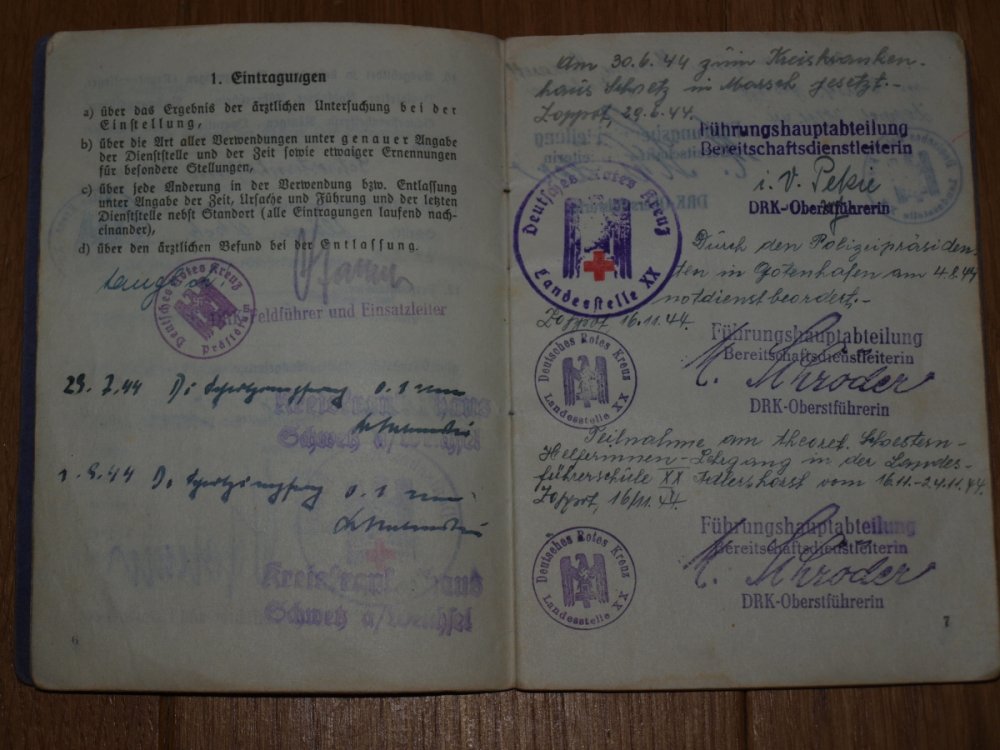 1. Eintragungen
a) über das Ergebnis der ärztlichen Untersuchung bei der
Einstellung,
b) über die Art aller Verwendungen unter genauer Angabe
der Dienststelle und der Zeit sowie etwaiger Ernennungen
für besondere Stellungen,
c) über jede Änderung in der Verwendung bzw. Entlassung
unter Angabe der Zeit, Ursache und Führung und der letzten
Dienststelle nebst Standort (alle Eintragungen laufend nach-
einander),
d) über den ärztlichen Befund bei der Entlassung.
Deutsches Rotes Kreuz
Präsidium
DRK-Feldführer und Einsatzleiter
29.7.44
0.1
Schwetz a/Weichsel
44
0.1
Schwetz a/Weichsel
6
Am 30.6.44 zum Kreiskranken-
haus Schwetz in Marsch gesetzt.-
Zoppot, 29.6.44.
Führungshauptabteilung
Bereitschaftsdienstleiterin
i.V. Pekie
DRK-Oberstführerin
Deutsches Rotes Kreuz
Landesstelle XX
Durch den Polizeipräsiden-
ten in Gotenhafen am 4.8.44
notdienstbeordert.-
Zoppot, 16.11.44.
Führungshauptabteilung
Bereitschaftsdienstleiterin
M. Schröder
DRK-Oberstführerin
Deutsches Rotes Kreuz
Landesstelle XX
Teilnahme am theoret. Schwestern-
Helferinnen-Lehrgang in der Landes-
führerschule XX Adlershorst vom 16.11.-24.11.44.
Zoppot, 16/11.44.
Führungshauptabteilung
Bereitschaftsdienstleiterin
M. Schröder
DRK-Oberstführerin
Deutsches Rotes Kreuz
Landesstelle XX
7